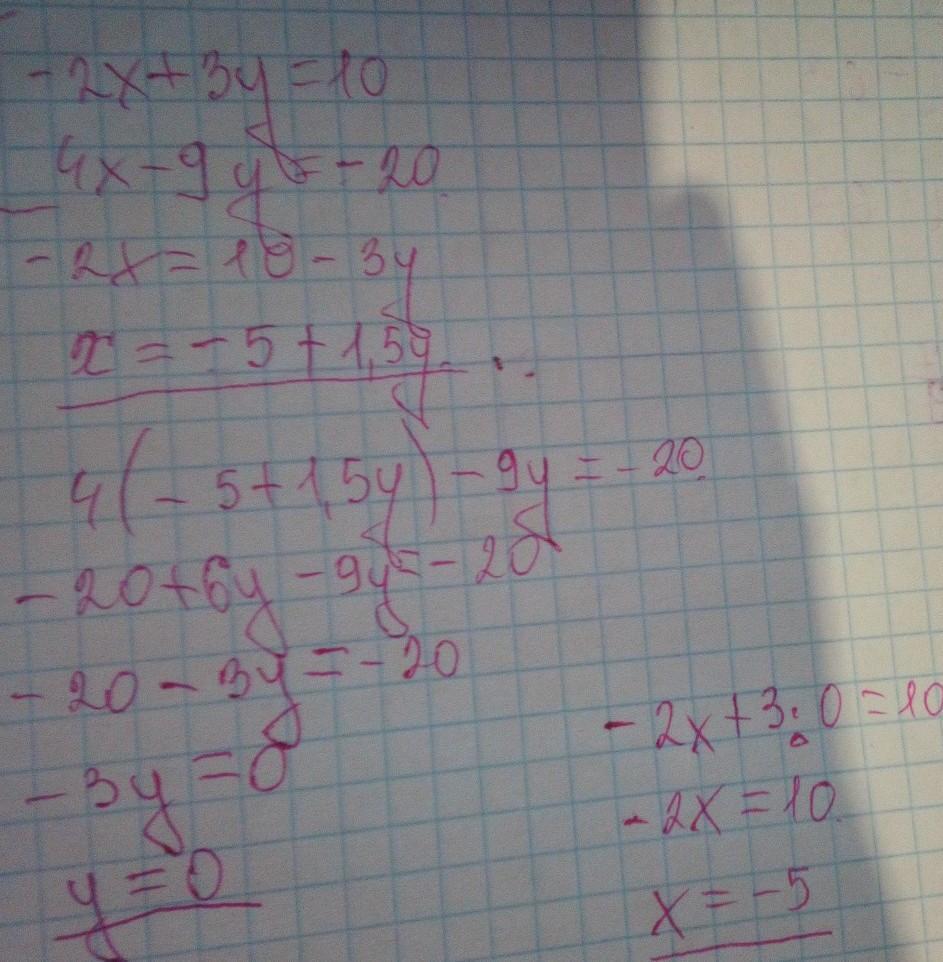 -2x+3y=10
4x-9y=-20
-2x=10-3y
x=-5+1,5y.
4(-5+1,5y)-9y=-20.
-20+6y-9y=-20
-20-3y=-20
-3y=0
y=0
-2x+3·0=10
-2x=10.
x=-5